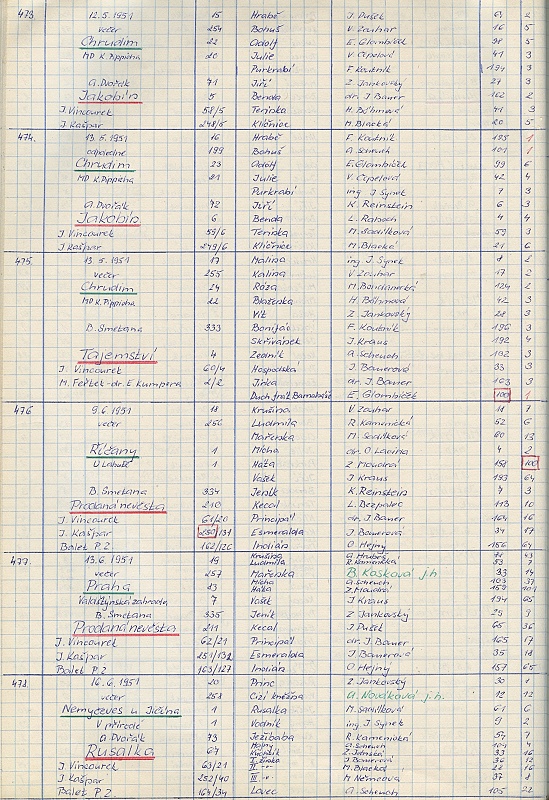 473. 12.5.1951 15 Hrabě J. Dušek 64 2
večer 254 Bohuš V. Zouhar 16 5
Chrudim 22 Adolf E. Glombíček 98 5
MD K. Pippicha 20 Julie V. Čepelová 41 3
Purkrabí F. Koutník 194 3
A. Dvořák 71 Jiří Z. Jankovský 27 3
Jakobín 5 Benda dr. J. Bauer 162 2
J. Vincourek 58/5 Terinka H. Böhmová 41 3
J. Kašpar 248/5 Klíčníce M. Blacká 20 5
474. 13.5.1951 16 Hrabě F. Koutník 195 1
odpoledne 199 Bohuš A. Scheuch 101 1
Chrudim 23 Adolf E. Glombíček 99 6
MD K. Pippicha 21 Julie V. Čepelová 42 4
Purkrabí ing J. Synek 7 3
A. Dvořák 72 Jiří K. Reinstein 6 3
Jakobín 6 Benda L. Raboch 4 4
J. Vincourek 59/6 Terinka M. Sadílková 59 3
J. Kašpar 249/6 Klíčníce M. Blacká 21 6
475. 13.5.1951 17 Malina ing J. Synek 8 2
večer 255 Kalina V. Zouhar 17 2
Chrudim 24 Róza M. Bohdanecká 124 2
MD K. Pippicha 22 Blaženka H. Böhmová 42 3
Vít Z. Jankovský 28 3
B. Smetana 333 Bonifác F. Koutník 196 3
Skřivánek J. Kraus 192 4
Tajemství 4 Zedník A. Scheuch 102 3
J. Vincourek 60/4 Hospodská J. Bauerová 33 3
M. Feřtek - dr. E. Kumpera 2/2 Jirka dr. J. Bauer 163 3
Duch frat. Barnabáše E. Glombíček 100 1
476 9.6.1951 18 Krušina V. Zouhar 18 7
večer 256 Ludmila R. Kamenická 52 6
Mařenka M. Sadílková 60 13
Říčany 1 Mícha dr. O. Lavína 4 2
U Labutě 1 Háta Z. Moudrá 158 100
Vašek J. Kraus 193 64
B. Smetana 334 Jeník K. Reinstein 7 3
Prodaná nevěsta 210 Kecal L. Bezpalec 113 10
J. Vincourek 61/20 Principál dr. J. Bauer 164 16
J. Kašpar 250/131 Esmeralda J. Bauerová 34 17
Balet P.Z. 162/126 Indián O. Hejný 156 64
477. 13.6.1951 19 Krušina
Ludmila R. Kamenická 53 7
večer 257 Mařenka B. Kosková j.h. 33 14
Praha 23 Mícha A. Scheuch 103 37
Háta Z. Moudrá 159 101
Valdštýnská zahrada 7 Vašek J. Kraus 194 65
B. Smetana 335 Jeník Z. Jankovský 29 3
Prodaná nevěsta 211 Kecal J. Dušek 65 36
J. Vincourek 62/21 Principál dr. J. Bauer 165 17
J. Kašpar 251/132 Esmeralda J. Bauerová 35 18
Balet P.Z. 163/127 Indián O. Hejný 157 65
478. 16.6.1951 20 Princ Z. Jankovský 30 1
večer 258 Cizí kněžna A. Nováková j.h. 12 12
Nemyčeves u Jičína 1 Rusalka M. Sadílková 61 6
V přírodě 1 Vodník ing J. Synek 9 2
A. Dvořák 73 Ježibaba R. Kamenická 54 7
Hajný A. Scheuch 104 4
Rusalka 64 Kuchtík 33 16
J. Vincourek 63/21 J. Bauerová 36 12
II. M. Blacká 22 16
J. Kašpar 252/40 III. M. Němcova 37 8
Balet P.Z. 164/34 Lovec A. Scheuch 105 22